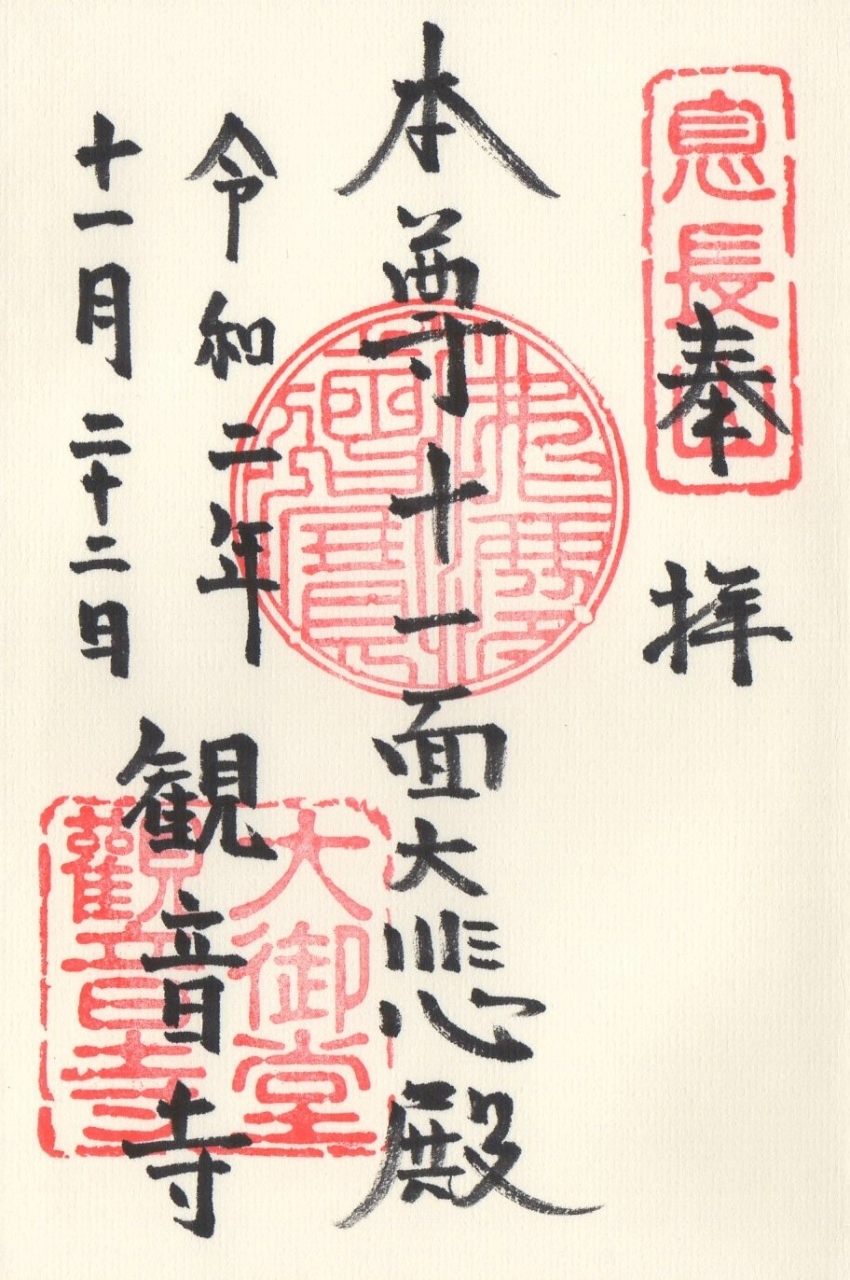 奉拝
息長山
本尊十一面大悲殿
令和二年
十一月二十二日
観音寺
大御堂
觀音寺